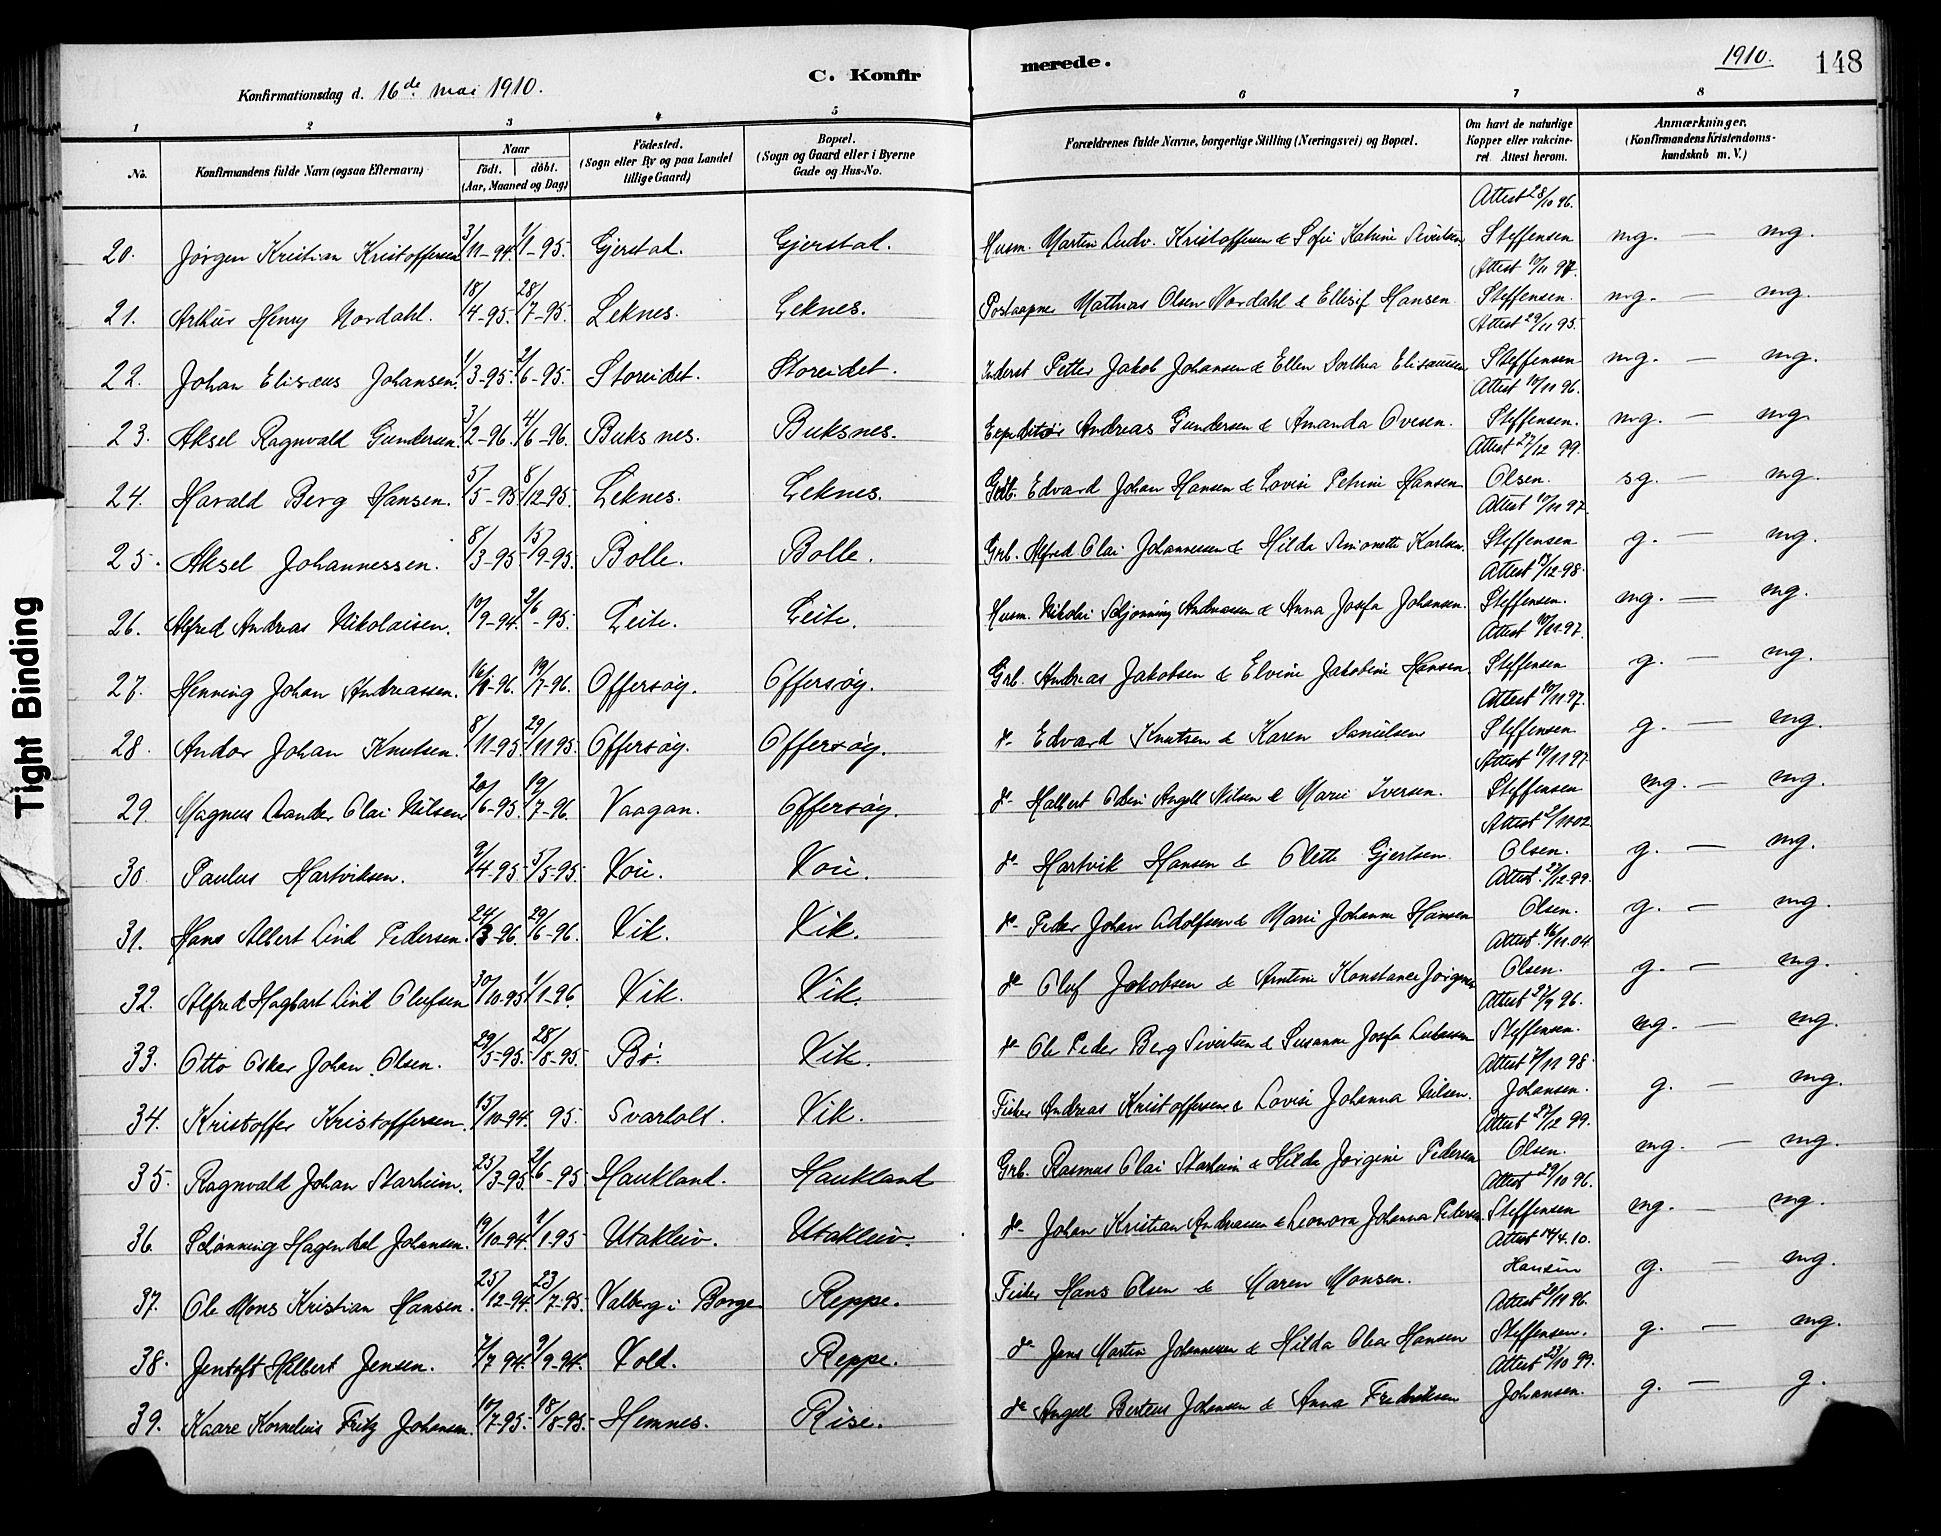 Konfirmationsdag d. 16de mai 1910.
C. Konfirmerede.
1910. 148
1 2 3 4 5 6 7 8
No.
Konfirmandens fulde Navn (ogsaa Efternavn)
Naar
födt. döbt.
(Aar, Maaned og Dag)
Födested.
(Sogn eller By og paa Landet
tillige Gaard)
Bopæl.
(Sogn og Gaard eller i Byerne
Gade og Hus-No.
Forældrenes fulde Navne, borgerlige Stilling (Næringsvei) og Bopæl.
Om havt de naturlige
Kopper eller vakcine-
ret. Attest herom.
Anmærkninger.
(Konfirmandens Kristendoms-
kundskab m. V.)
Attest 28/10 96.
20. Jørgen Kristian Kristoffersen 3/11-94. 1/1-95. Gjerstad. Gjerstad. Husm. Martin Ludv. Kristoffersen & Sofie Katrine Sivertsen Steffensen mg. — mg.
Attest 10/11 97.
21. Arthur Henry Nordahl. 18/4-95. 28/7-95. Leknes. Leknes. Postaapner Mathias Olsen Nordahl & Ellesif Hansen. Steffensen. mg. — mg.
Attest 29/11 95.
22. Johan Elisæus Johansen. 1/3-95. 2/6-95. Storeidet. Storeidet. Inderst Petter Jakob Johansen & Ellen Dorthea Elisæussen Steffensen mg. — mg.
Attest 10/11 96.
23. Aksel Ragnvald Gundersen. 3/2-96. 4/6-96. Buksnes. Buksnes. Expeditør Andreas Gundersen & Amanda Ovesen. Steffensen. mg. — mg.
Attest 27/12 99.
24. Harald Berg Hansen. 5/5-95 8/12-95. Leknes. Leknes. Edvard Johan Hansen & Lovise Petrine Hansen Olsen. sg. — mg.
Attest 10/11 97.
25. Aksel Johannessen. 8/3-95 15/9-95. Bolle. Bolle. Grb. Alfred Olai Johannessen & Hilda Simonette Karlsen. Steffensen g. — mg.
26. Alfred Andreas Nikolaisen. 10/9-94. 2/6-95. Leite. Leite. Husm. Nikolai Schjønning Andreassen & Anna Josefa Johansen. Steffensen. mg. — mg.
Attest 10/11-97.
27. Henning Johan Andreassen. 19/7-96. Offersøy. Offersøy. Grb. Andreas Jakobsen & Elvine Jakobine Hansen. Steffensen g. — mg.
Attest 10/11 97.
28. Andor Johan Knutsen. 8/11-95. 29/11 95. Offersøy. Offersøy. do Edvard Knutsen & Karen Danielsen Steffensen g. — mg.
Attest 10/11 97
29. Magnus Olai Nilsen 20/6-95. 19/7-96. Vaagan. Offersøy. do Halbert Odin Angell Nilsen & Marie Iversen. Steffensen mg. — mg.
30. Paulus Hartviksen. 9/4-95. 5/5-95. Voie. Voie. do Hartvik Hansen & Olette Gjertsen Olsen. g. — mg.
Attest 27/12-99.
31. Hans Albert Lind Pedersen. 24/3-96 29/6-96. Vik. Vik. do Peder Johan Adolfsen & Marie Johanne Hansen Olsen. g. — mg.
Attest 16/11.04
32. Alfred Hagbart Lind Olufsen 30/10-95 1/1-96. Vik. Vik. do Oluf Jakobsen & Arntine Konstance Jørgens. Olsen. g. — mg.
33. Otto Osker Johan Olsen. 29/5-95. 28/8-95. Bø. Vik. do Ole Peder Berg Sivertsen & Susanne Josefa Lukassen Steffensen. mg. — mg.
34. Kristoffer Kristoffersen 15/10-94. 95. Svarholt. Vik. Fisker Andreas Kristoffersen & Lovise Johanna Nilsen. Johansen. g. — mg.
Attest 27/12 99.
35. Ragnvald Johan Starheim. 25/3-95. 2/6-95 Haukland. Haukland Grb. Rasmus Olai Starheim & Hilda Jørgine Pedersen Olsen. mg. — mg.
Attest 29/10 96.
36. Schønning Hagendal Johansen. 19/10-94. 1/1-95 Utakleiv. Utakleiv. do Johan Kristian Andreassen & Leonora Johanna Pedersen Steffensen mg. — mg.
Attest 14/4.10.
37. Ole Mons Kristian Hansen. 25/12-94. 23/7-95. Valberg i Borge Reppe. Fisker Hans Olsen & Maren Monsen. Hansen g. — mg.
Attest 20/11 96.
38. Jentoft Helbert Jensen. 7/7 94. 9/9-94. Vold. Reppe. do Jens Martin Johannessen & Hilda Olea Hansen Steffensen. g. — mg.
Attest 23/10 99.
39. Kaare Kornelius Fritz Johansen. 10/7-95. 18/8-95. Hemnes. Rise. do Angell Berteus Johansen & Anna Fredriksen Johansen. g. — g.
Tight Binding